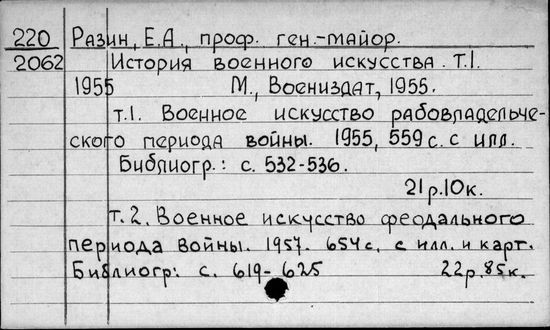 220 Разин, Е.А., проф. ген.-майор.
2062 История военного искусства. Т.1.
1955 М., Воениздат, 1955.
т.1. Военное искусство рабовладельче-
ского периода войны. 1955, 559 с. с илл.
Библиогр.: с. 532-536.
21 р. 10 к.
т. 2. Военное искусство феодального
периода войны. 1957. 654 с. с илл. и карт.
Библиогр: с. 619-625 22 р. 85 к.